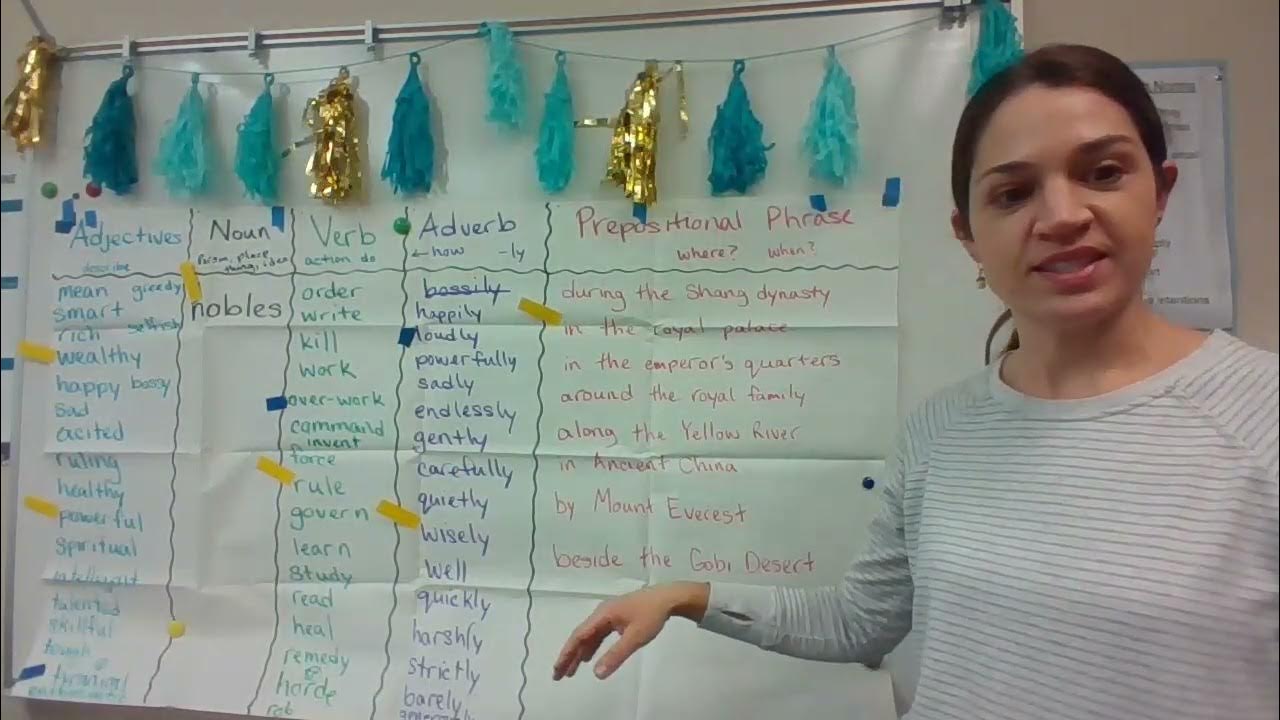 Adjectives
describe
mean greedy
smart
rich selfish
wealthy
happy bossy
sad
acited
ruling
healthy
powerful
spiritual
intelligent
talented
skillful
Noun
person, place
thing, idea
nobles
Verb
action do
order
write
kill
work
over-work
command
invent
force
rule
govern
learn
study
read
heal
remedy
horde
rob
Adverb
←how -ly
bossily
happily
loudly
powerfully
sadly
endlessly
gently
carefully
quietly
wisely
well
quickly
harshly
strictly
barely
Prepositional Phrase
where? when?
during the Shang dynasty
in the royal palace
in the emperor's quarters
around the royal family
along the Yellow River
in Ancient China
by Mount Everest
beside the Gobi Desert